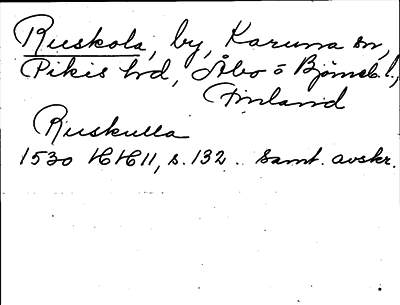 Ruskola, by, Karuna sn,
Pikis hd, Åbo o Björneb. l.,
Finland
Ruskulla
1530 HH 11, s. 132. Samt. avskr.